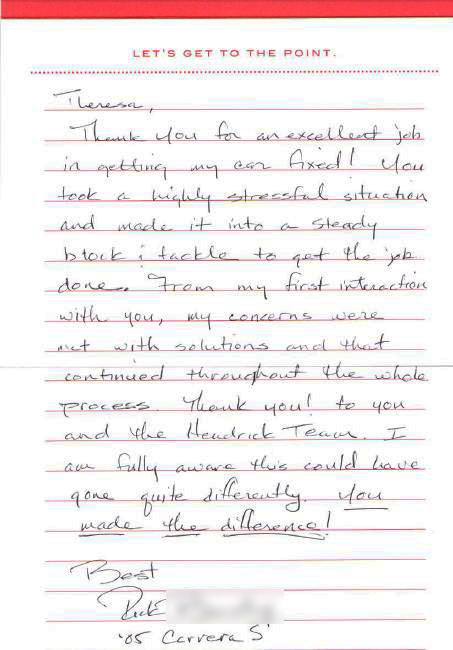 LET'S GET TO THE POINT.
Theresa,
Thank you for an excellent job
in getting my car fixed! You
took a highly stressful situation
and made it into a steady
block & tackle to get the job
done. From my first interaction
with you, my concerns were
met with solutions and that
continued throughout the whole
process. Thank you! to you
and the Hendrick Team. I
am fully aware this could have
gone quite differently. You
made the difference!
Best
Rick
'05 Carrera S